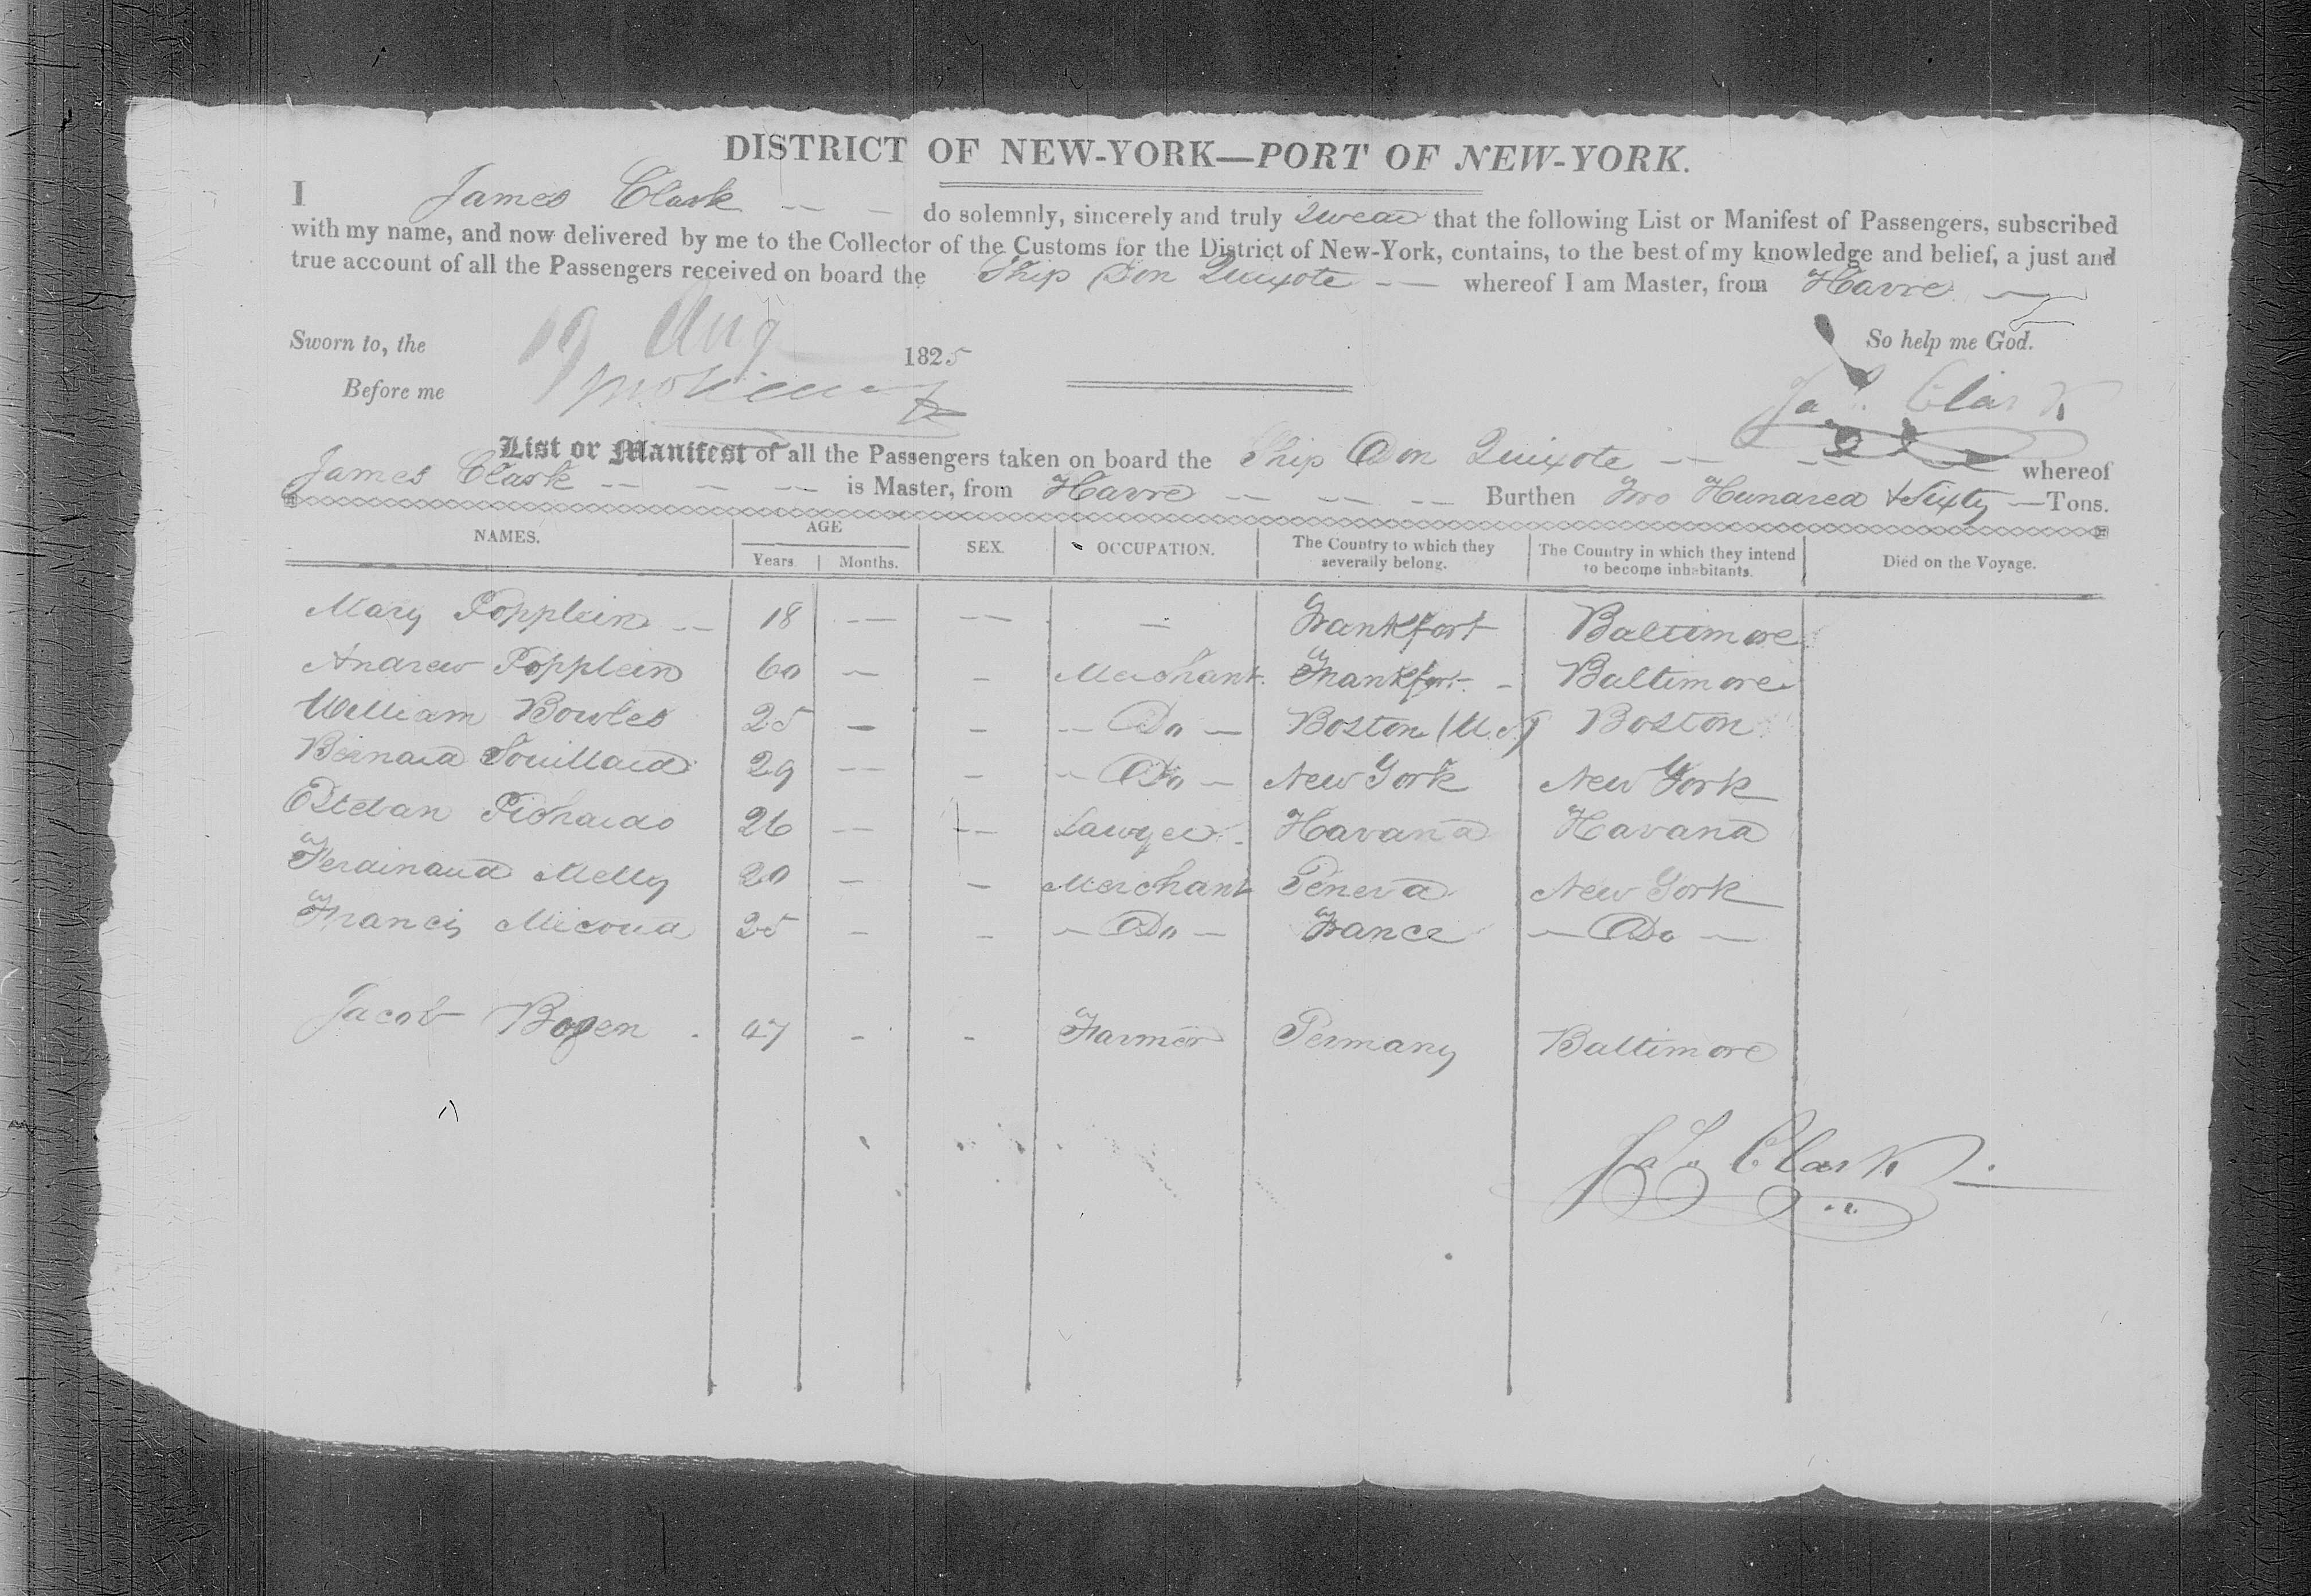 DISTRICT OF NEW-YORK—PORT OF NEW-YORK.
I James Clark do solemnly, sincerely and truly swear that the following List or Manifest of Passengers, subscribed
with my name, and now delivered by me to the Collector of the Customs for the District of New-York, contains, to the best of my knowledge and belief, a just and
true account of all the Passengers received on board the Ship Don Quixote whereof I am Master, from Havre
So help me God.
Sworn to, the 19 Aug 1825
Before me
Jas. Clark
List or Manifest of all the Passengers taken on board the Ship Don Quixote whereof
James Clark is Master, from Havre Burthen Two Hundred & Sixty — Tons.
NAMES. AGE SEX. OCCUPATION. The Country to which they severally belong. The Country in which they intend to become inhabitants. Died on the Voyage.
Years. Months.
Mary Popplein -- 18 -- -- — Frankfort Baltimore
Andrew Popplein 60 — - Merchant. Frankfort - Baltimore
William Bowles 25 — - -- Do — Boston (U.S) Boston
Bernard 29 -- - -- Do — New York New York
Esteban Pichardo 26 -- -- Lawyer Havana Havana
Ferdinand Melly 20 — - Merchant Geneva New York
Francis Micoud 25 - - — Do — France — Do —
Jacob Bogen 47 - - Farmer Germany Baltimore
Jas. Clark